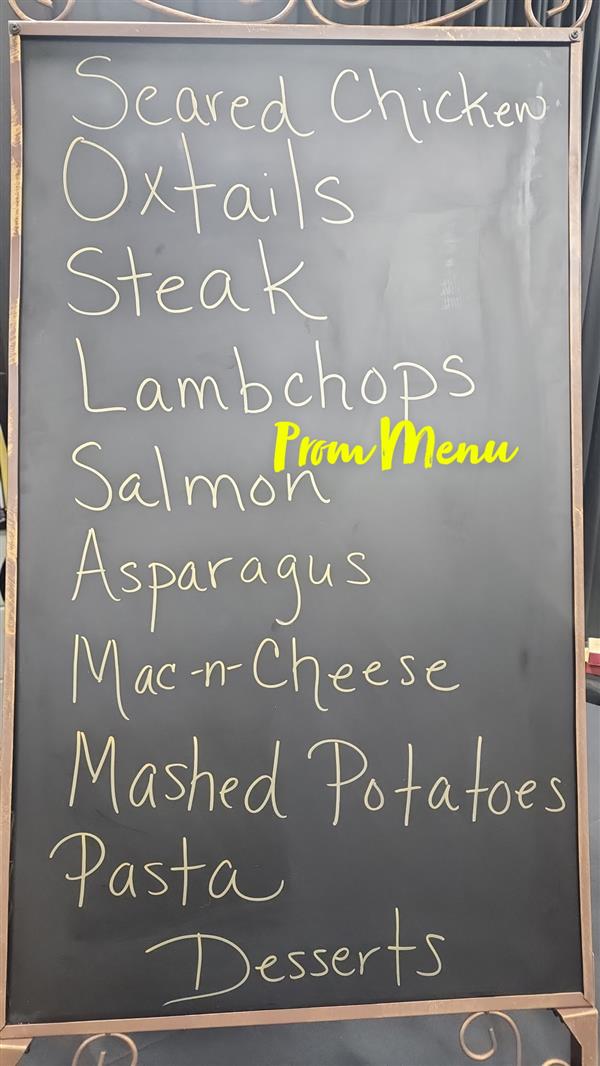 Seared Chicken
Oxtails
Steak
Lambchops
Prom Menu
Salmon
Asparagus
Mac-n-Cheese
Mashed Potatoes
Pasta
Desserts